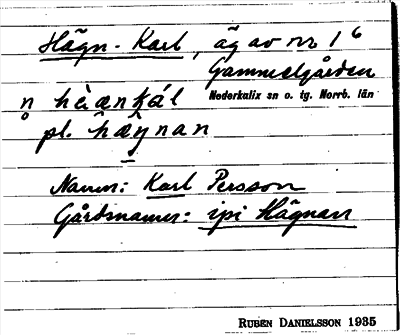 Hägn-Karl, äg av nr 1 6
Gammelgården
Nederkalix sn o. tg. Norrb. län
pl.
Namn: Karl Persson
Gårdsnamn: ipi Hägnan
RUBEN DANIELSSON 1935